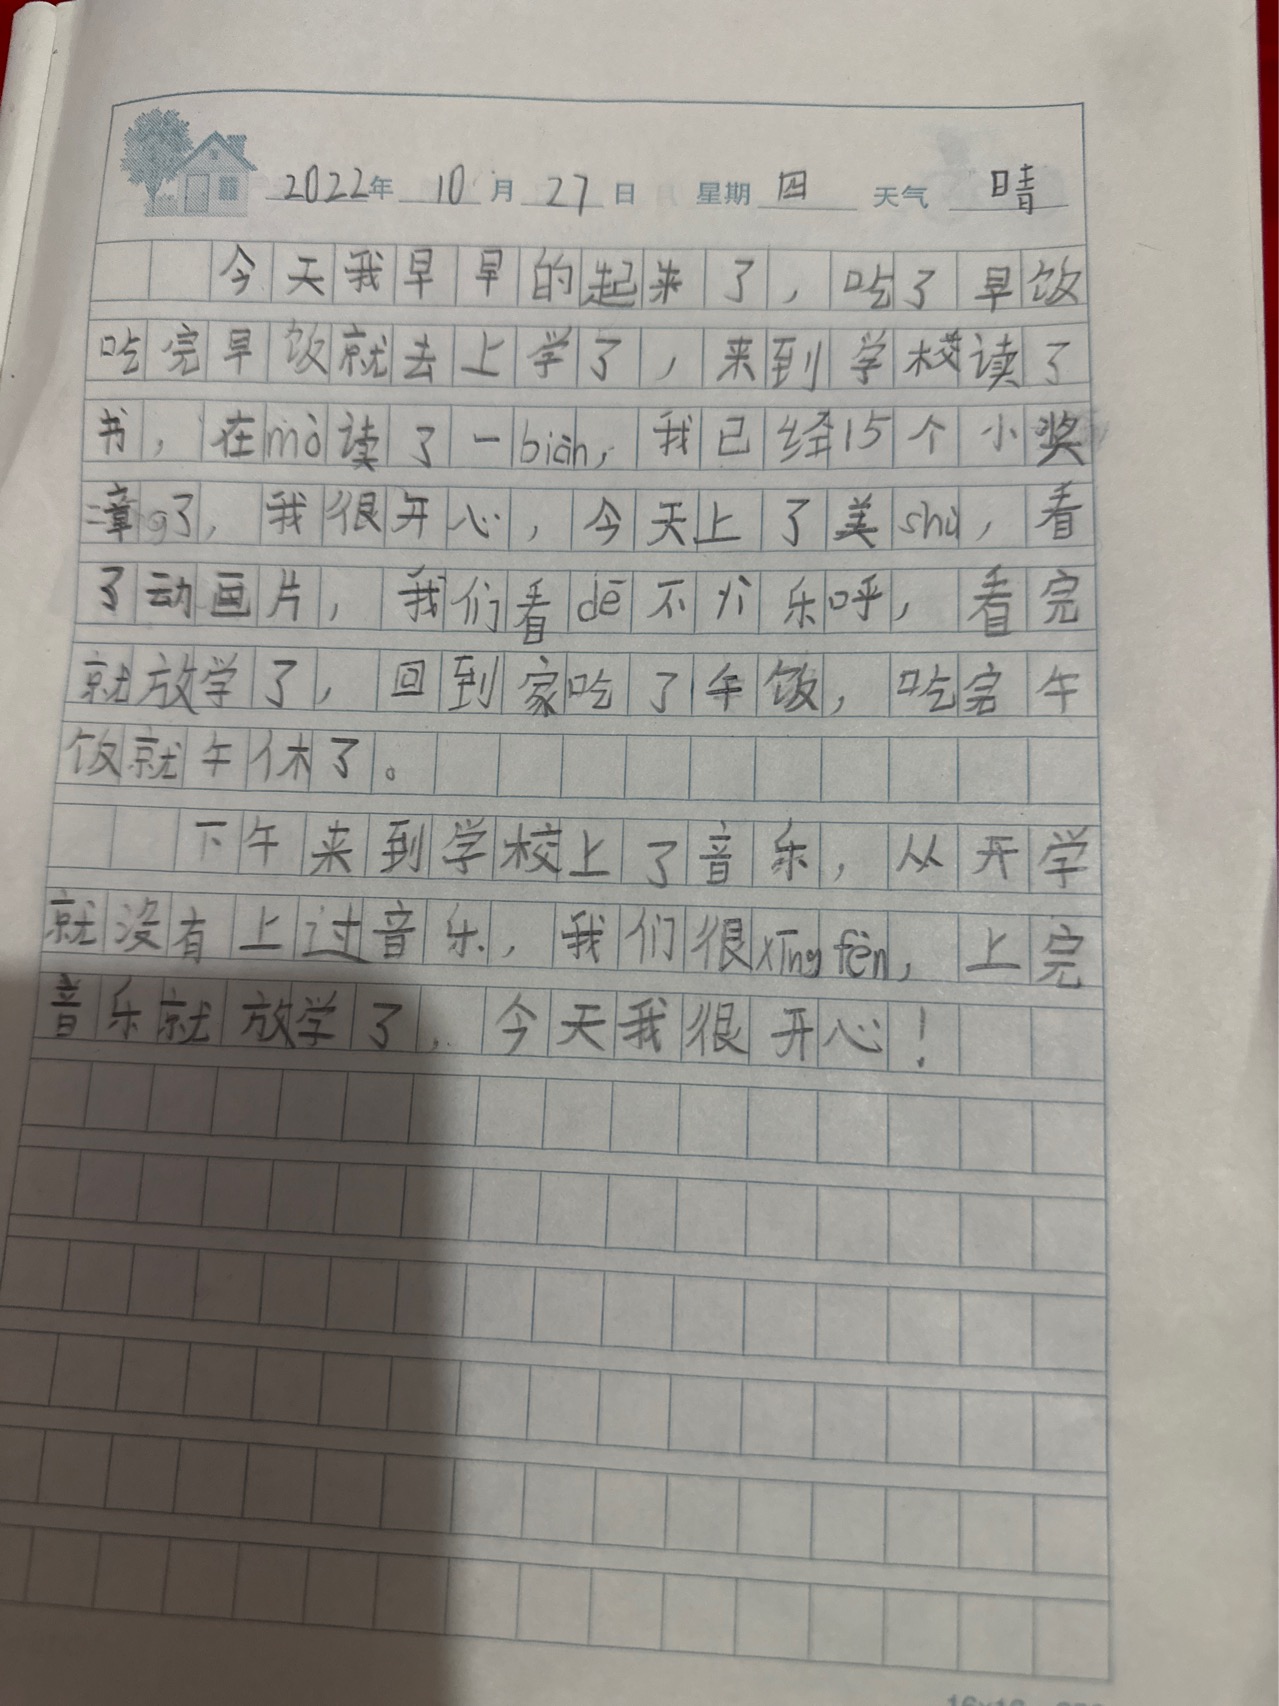 2022年 10月 27日 星期 四 天气 晴
今天我早早的起来了，吃了早饭
吃完早饭就去上学了，来到学校读了
书，在mò读了一biàn，我已经15个小奖
章了，我很开心，今天上了美shù，看
了动画片，我们看dē不亦乐呼，看完
就放学了，回到家吃了午饭，吃完午
饭就午休了。
下午来到学校上了音乐，从开学
就没有上过音乐，我们很xīng fèn，上完
音乐就放学了，今天我很开心！